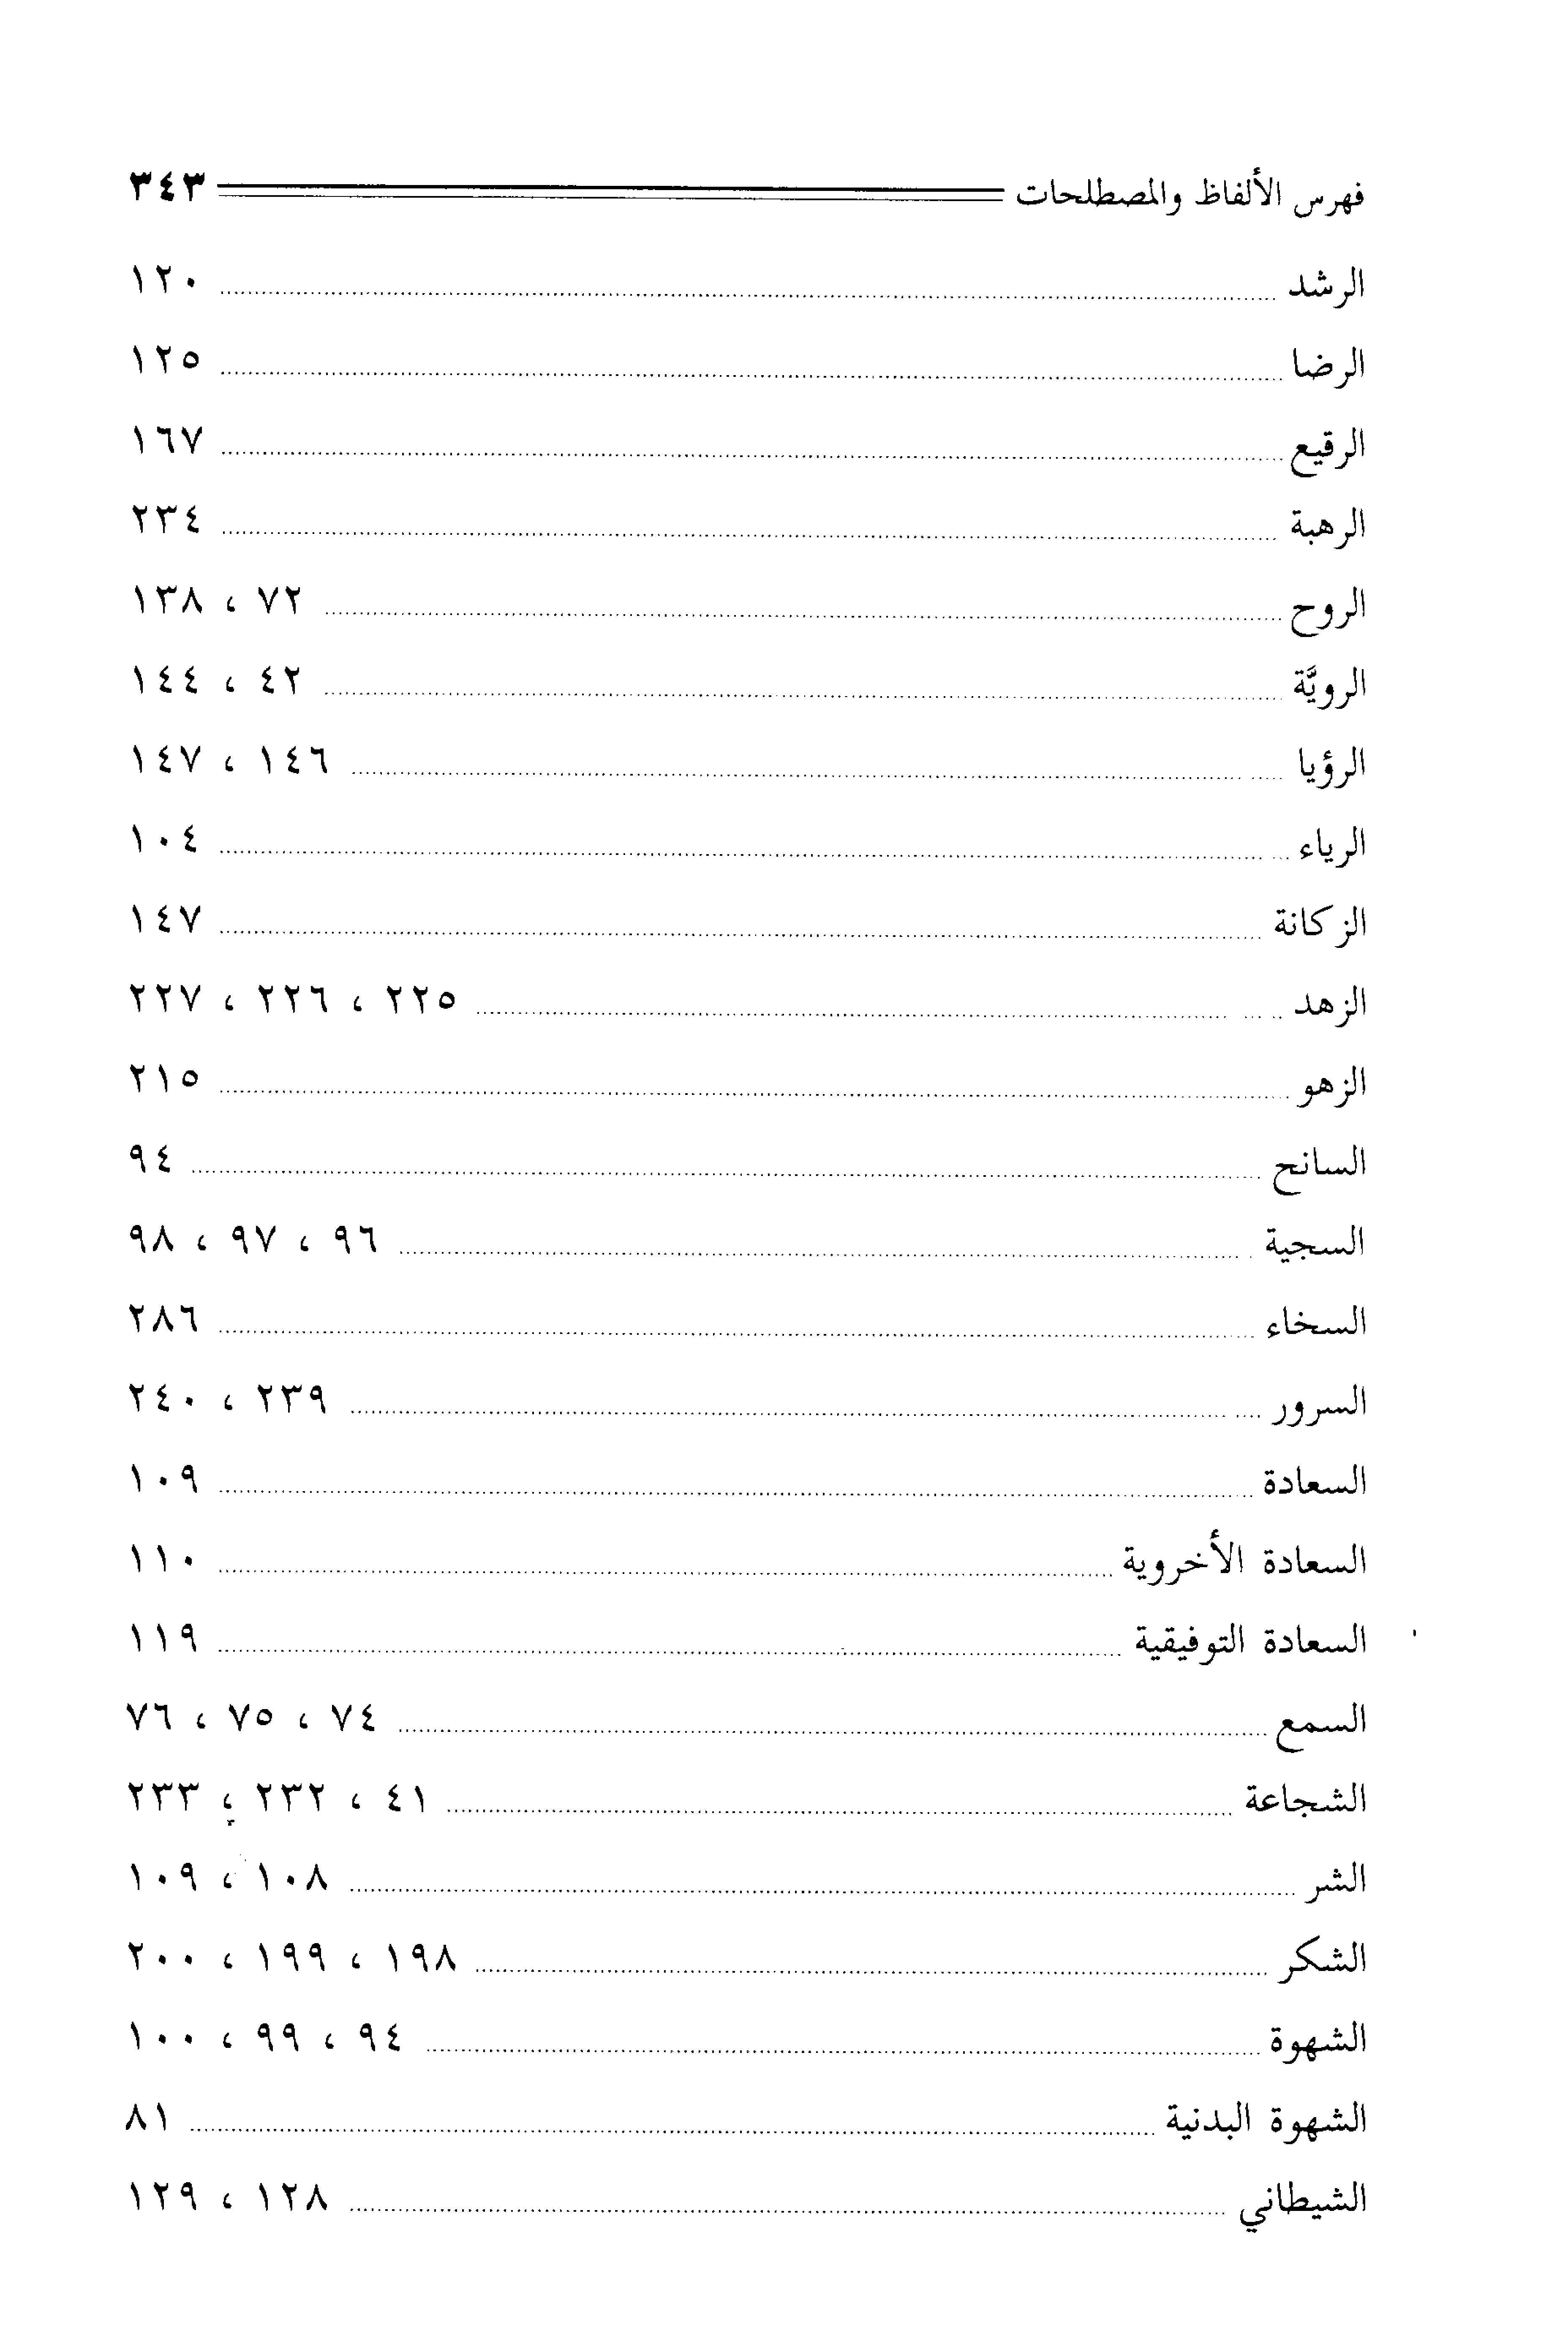 فهرس الألفاظ والمصطلحات ٣٤٣
الرشد ١٢٠
الرضا ١٢٥
الرقيع ١٦٧
الرهبة ٢٣٤
الروح ٧٢ ، ١٣٨
الرويَّة ٤٢ ، ١٤٤
الرؤيا ١٤٦ ، ١٤٧
الرياء ١٠٤
الزكانة ١٤٧
الزهد ٢٢٥ ، ٢٢٦ ، ٢٢٧
الزهو ٢١٥
السانح ٩٤
السجية ٩٦ ، ٩٧ ، ٩٨
السخاء ٢٨٦
السرور ٢٣٩ ، ٢٤٠
السعادة ١٠٩
السعادة الأخروية ١١٠
السعادة التوفيقية ١١٩
السمع ٧٤ ، ٧٥ ، ٧٦
الشجاعة ٤١ ، ٢٣٢ ، ٢٣٣
الشر ١٠٨ ، ١٠٩
الشكر ١٩٨ ، ١٩٩ ، ٢٠٠
الشهوة ٩٤ ، ٩٩ ، ١٠٠
الشهوة البدنية ٨١
الشيطاني ١٢٨ ، ١٢٩